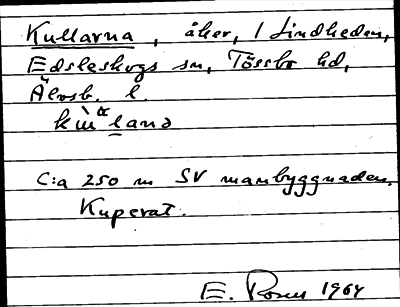 Kullarna, åker, 1 Lindheden,
Edsleskogs sn, Tössbo hd,
Älvsb. l.
C:a 250 m SV manbyggnaden.
Kuperat.
E. Rosén 1964